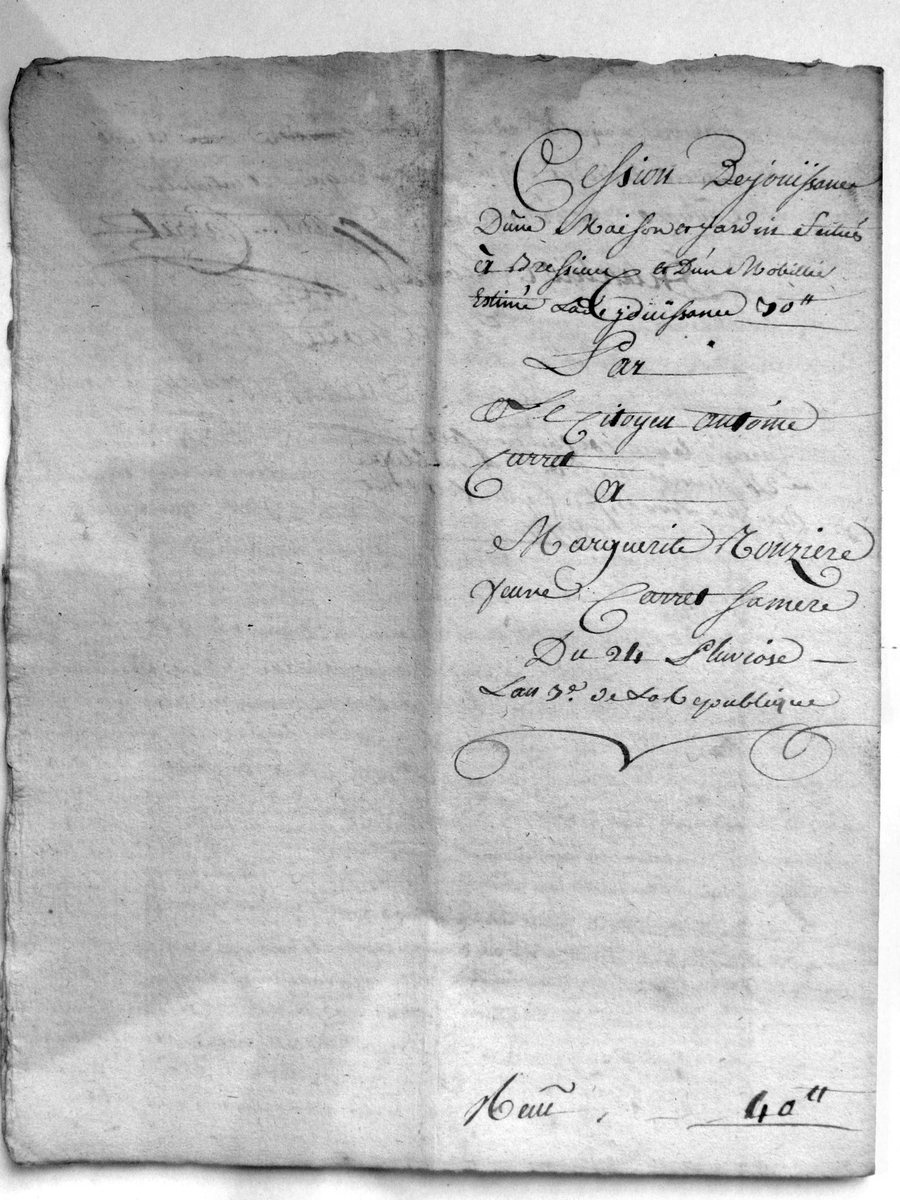 Cession De jouissance
D'une Maison et Jardin scitués
à Bressieux et D'un Mobillié
Estimé Lade jouissance 70tt
Par
Le Citoyen antoine
Carret
A
Marguerite Rouziere
Veuve Carret sa mere
Du 24 Pluviose
Lan 3e. de La Republique
40tt